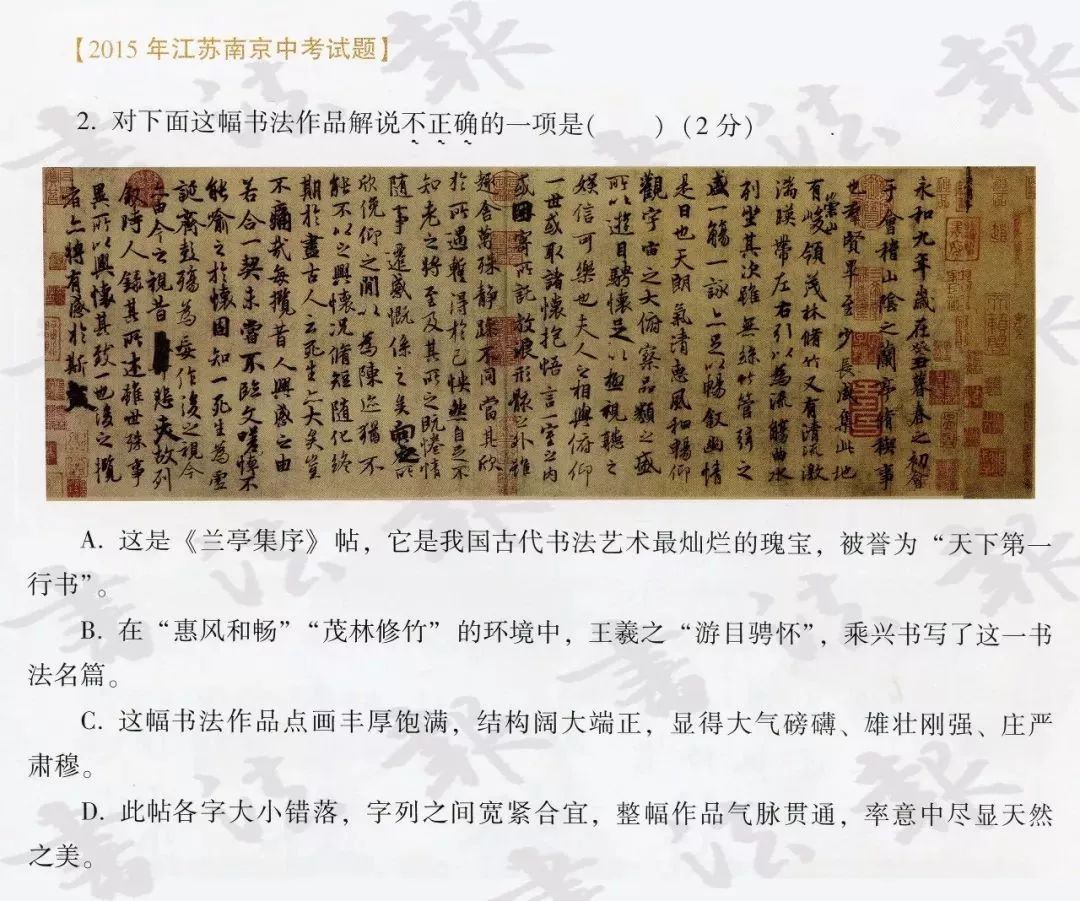 【2015 年江苏南京中考试题】
2. 对下面这幅书法作品解说不正确的一项是(　　)(2 分)
永和九年歲在癸丑暮春之初會
于會稽山陰之蘭亭脩稧事
也羣賢畢至少長咸集此地
有崇山峻領茂林脩竹又有清流激
湍暎帶左右引以為流觴曲水
列坐其次雖無絲竹管弦之
盛一觴一詠亦足以暢敘幽情
是日也天朗氣清惠風和暢仰
觀宇宙之大俯察品類之盛
所以遊目騁懷足以極視聽之
娛信可樂也夫人之相與俯仰
一世或取諸懷抱悟言一室之內
或因寄所託放浪形骸之外雖
趣舍萬殊靜躁不同當其欣
於所遇暫得於己怏然自足不
知老之將至及其所之既惓情
隨事遷感慨係之矣向之所
欣俛仰之閒以為陳迹猶不
能不以之興懷況脩短隨化終
期於盡古人云死生亦大矣豈
不痛哉每攬昔人興感之由
若合一契未嘗不臨文嗟悼不
能喻之於懷固知一死生為虛
誕齊彭殤為妄作後之視今
亦由今之視昔悲夫故列
敘時人錄其所述雖世殊事
異所以興懷其致一也後之攬
者亦將有感於斯文
A. 这是《兰亭集序》帖，它是我国古代书法艺术最灿烂的瑰宝，被誉为“天下第一
行书”。
B. 在“惠风和畅”“茂林修竹”的环境中，王羲之“游目骋怀”，乘兴书写了这一书
法名篇。
C. 这幅书法作品点画丰厚饱满，结构阔大端正，显得大气磅礴、雄壮刚强、庄严
肃穆。
D. 此帖各字大小错落，字列之间宽紧合宜，整幅作品气脉贯通，率意中尽显天然
之美。
書法報